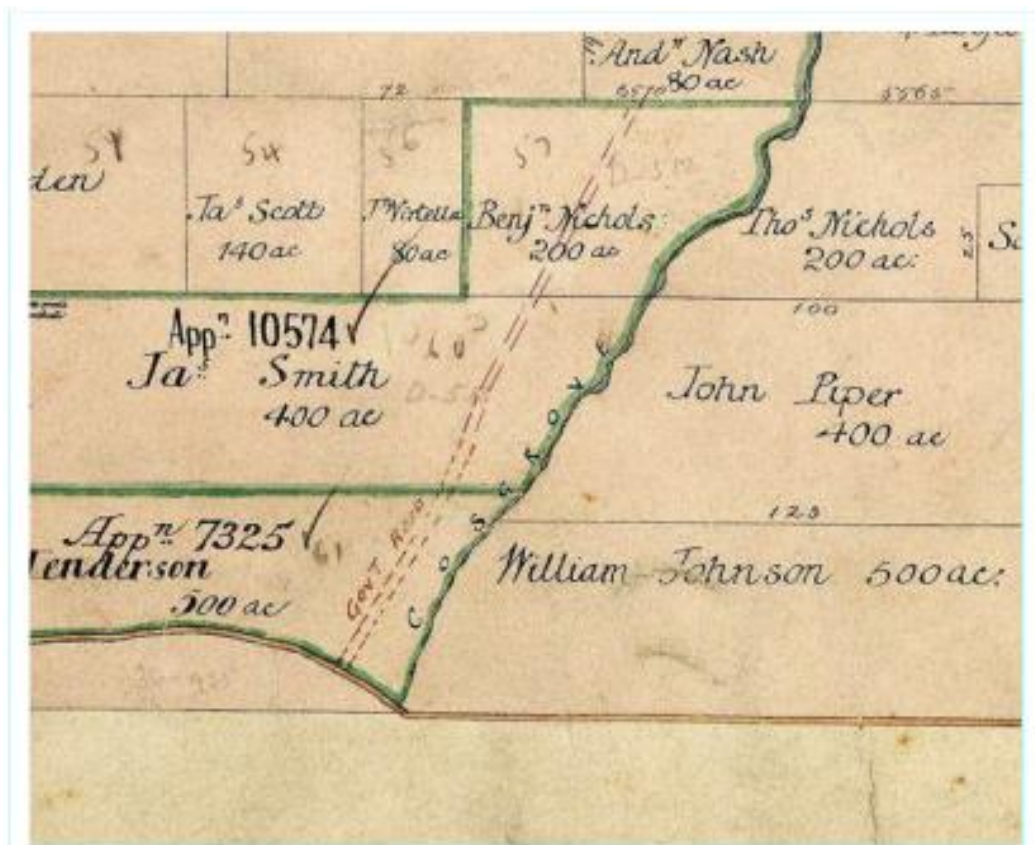 And.ⁿ Nash
80 ac
72
5570
5565
51
54
56
57
den
Ja.ˢ Scott
140 ac
80 ac
Benj.ⁿ Nichols
200 ac
Tho.ˢ Nichols
200 ac:
25
100
App.ⁿ 10574
Ja.ˢ Smith
400 ac
60
John Piper
400 ac
COSGROVE
123
App.ⁿ 7325
Henderson
500 ac
61
GOVT ROAD
William Johnson 500 ac: